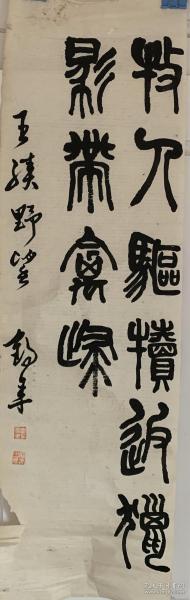 牧人驅犢返獵
馬帶禽歸
王績野望